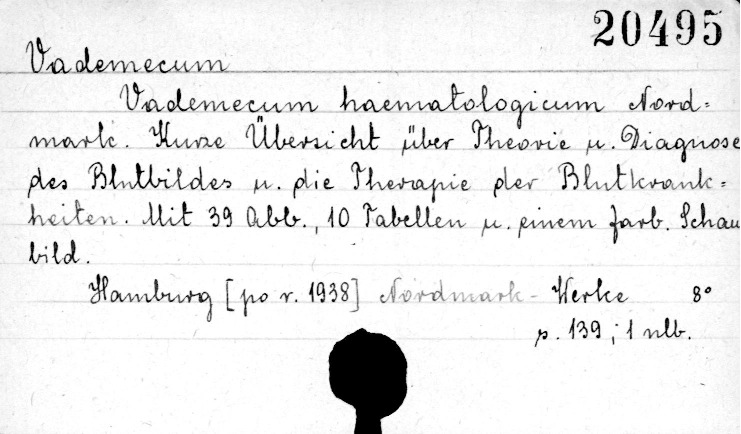 20495
Vademecum
Vademecum haematologicum Nord=
mark. Kurze Übersicht über Theorie u. Diagnose
des Blutbildes u. die Therapie der Blutkrank=
heiten. Mit 39 Abb., 10 Tabellen u. einem farb. Schau
bild.
Hamburg [po r. 1938] Nordmark-Werke 8°
p. 139; 1 nlb.